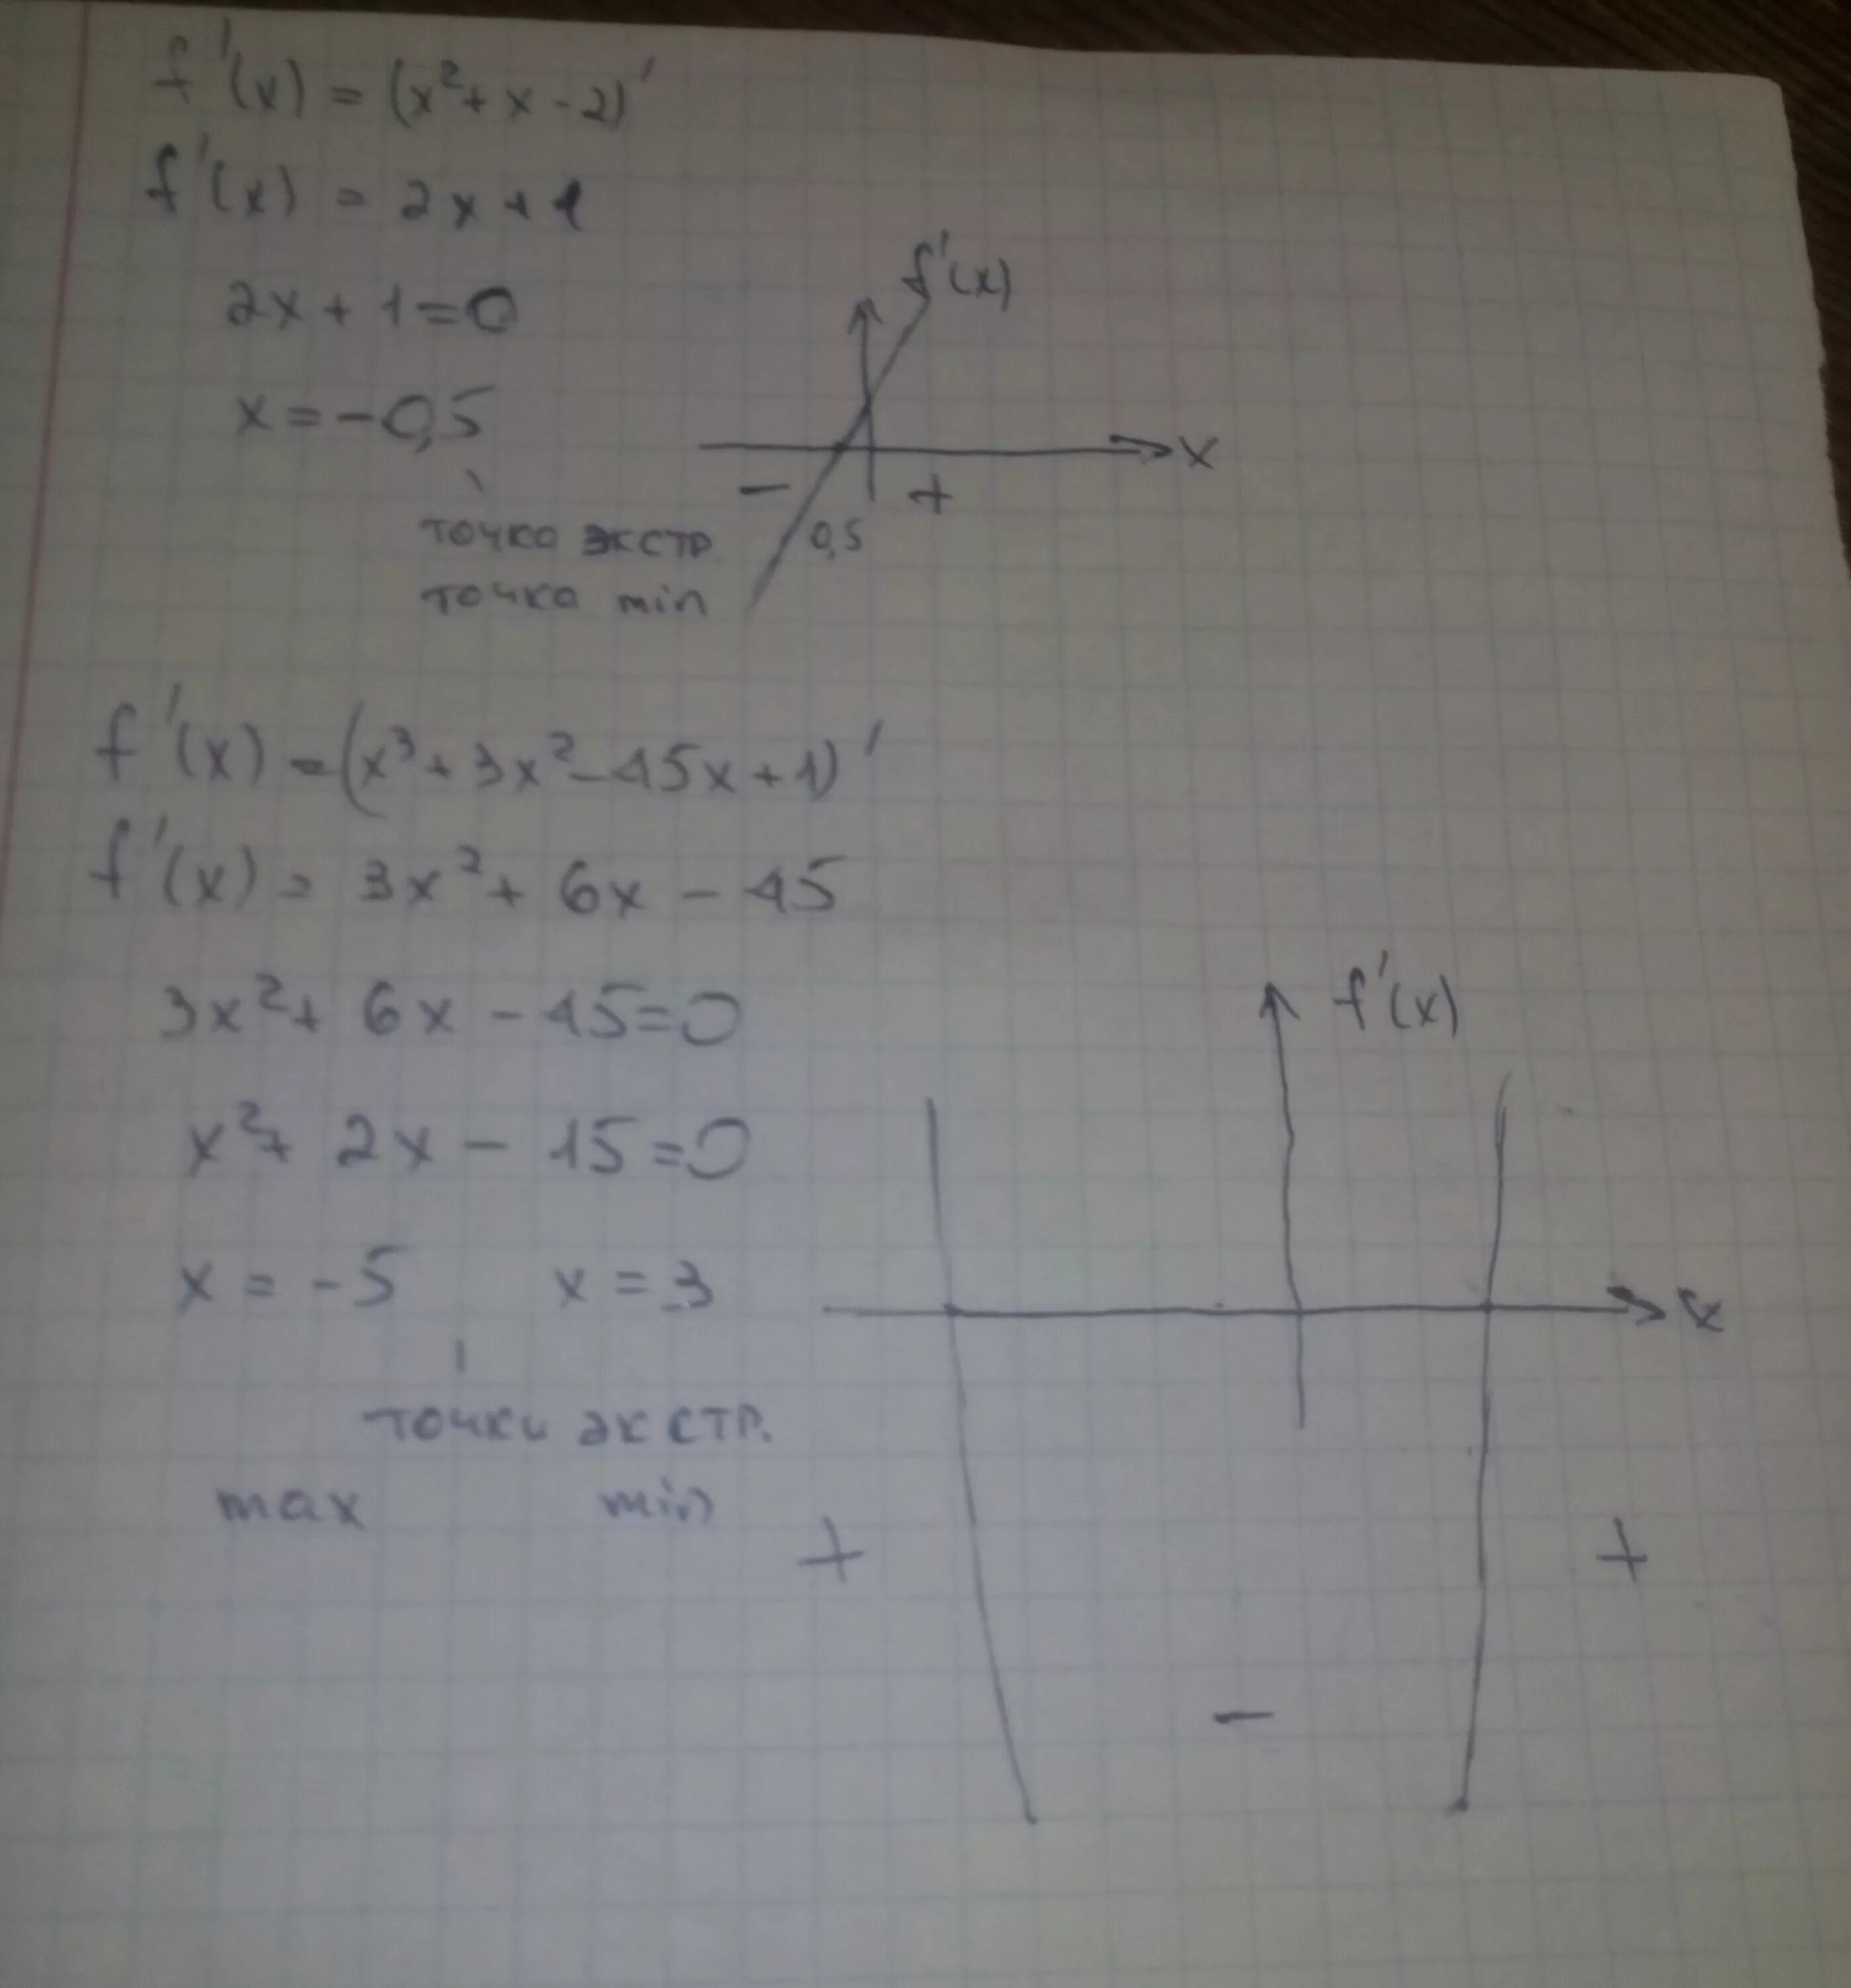 f'(x) = (x²+ x - 2)'
f'(x) = 2x + 1
2x + 1 = 0
x = -0,5
точка экстр.
точка min
f'(x)
x
- +
0,5
f'(x) = (x³ + 3x² - 45x + 1)'
f'(x) = 3x² + 6x - 45
3x² + 6x - 45 = 0
x² + 2x - 15 = 0
x = -5 x = 3
точки экстр.
max min
f'(x)
x
+ +
-